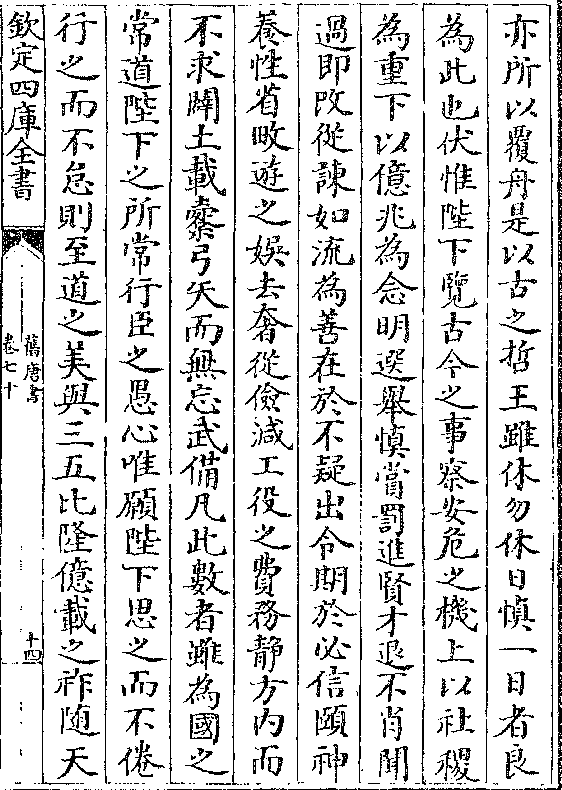 亦所以覆舟是以古之哲王雖休勿休日慎一日者良
為此也伏惟陛下覽古今之事察安危之機上以社稷
為重下以億兆為念明選舉慎賞罰進賢才退不肖聞
過即改從諫如流為善在於不疑出令期於必信頤神
養性省畋遊之娛去奢從儉減工役之費務静方内而
不求闢土載櫜弓矢而無忘武備凡此數者雖為國之
常道陛下之所常行臣之愚心唯願陛下思之而不倦
行之而不怠則至道之美與三五比隆億載之祚隨天
欽定四庫全書
舊唐書
卷七十
十四